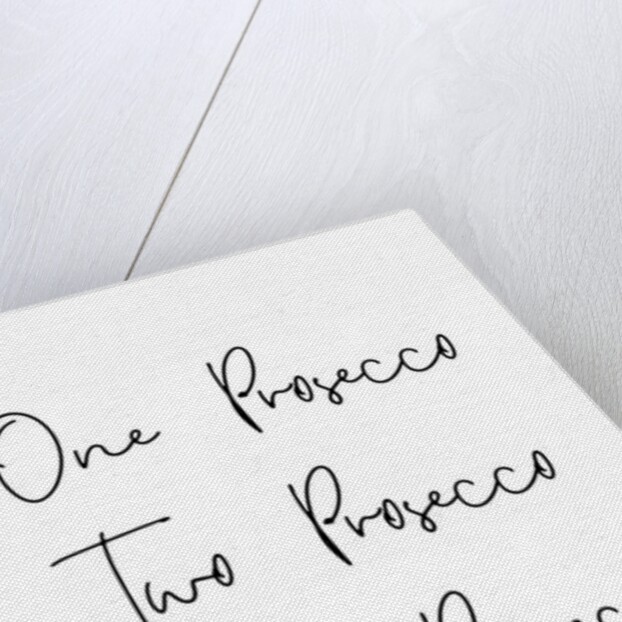 One Prosecco
Two Prosecco